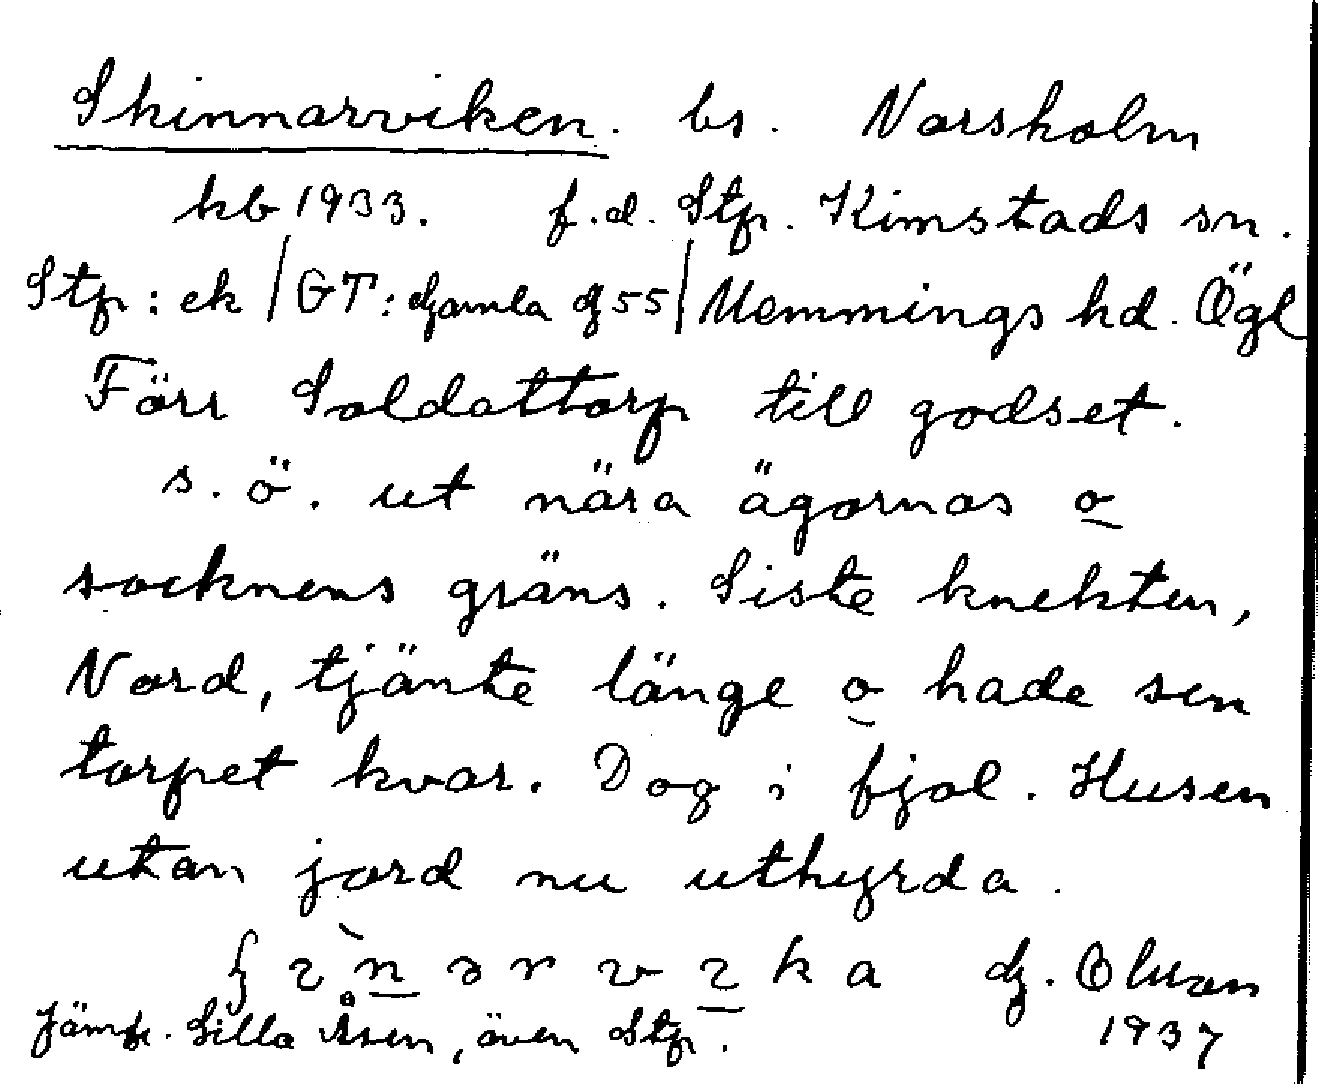 Skinnarviken. bs. Norsholm
kb 1933. f.d. Stp. Kimstads sn.
Stp: ek / GT: Gamla g 55 / Memmings hd. Ögl
Förr Soldattorp till godset.
s.ö. ut nära ägornas o
socknens gräns. Siste knekten,
Nord, tjänte länge o hade sen
torpet kvar. Dog i fjol. Husen
utan jord nu uthyrda.
G. Olsson
Jämför. Lilla Åsen, även Stp. 1937